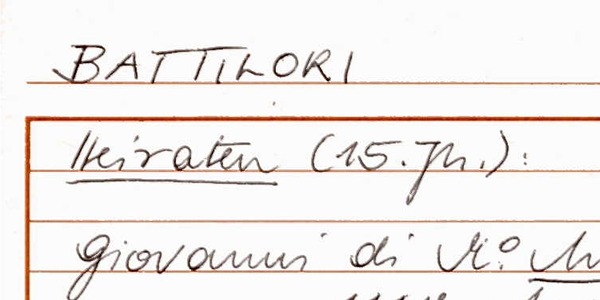 BATTILORI
Heiraten (15. Jh.):
Giovanni di M.o